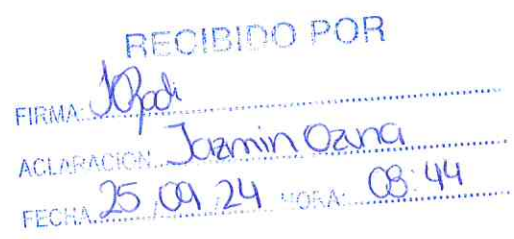 RECIBIDO POR
FIRMA:
ACLARACION: Jazmin Ozuna
FECHA 25/09/24 HORA: 08:44